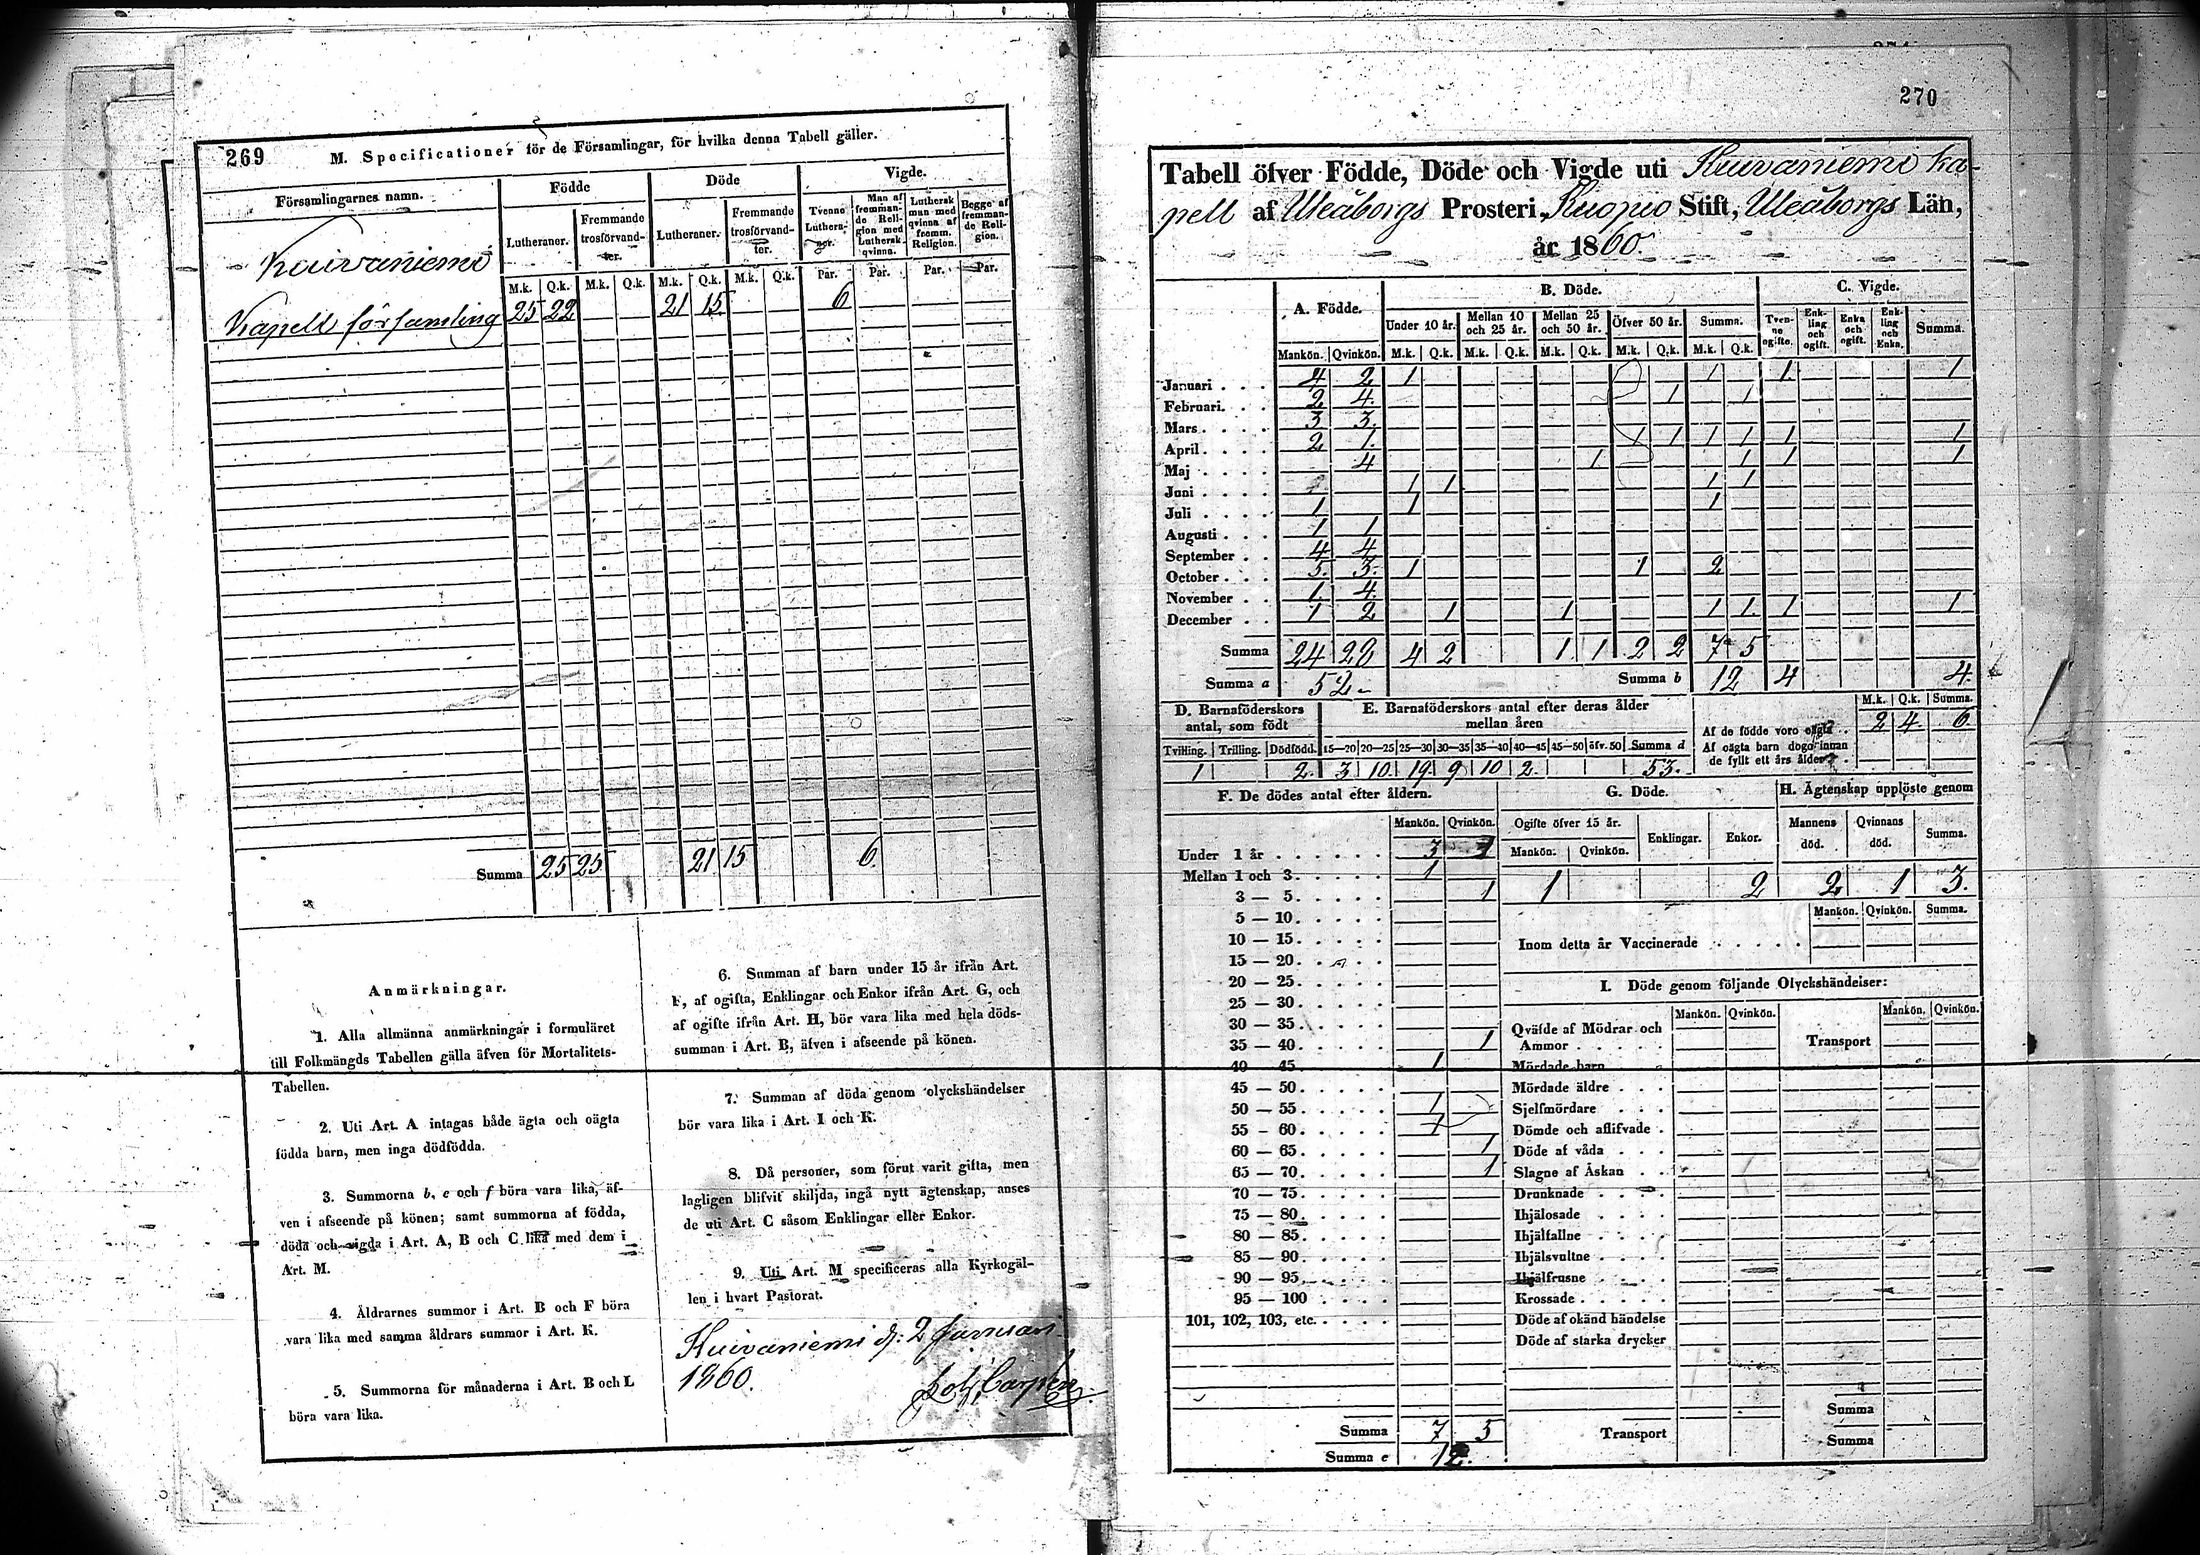 269
M. Specificationer för de Församlingar, för hvilka denna Tabell gäller.
Församlingarnes namn. Födde Döde Vigde.
Lutheraner. Fremmande trosförvandter. Lutheraner. Fremmande trosförvandter. Tvenne Lutheraner. Man af fremmande Religion med Luthersk qvinna. Luthersk man med qvinna af fremm. Religion. Begge af fremmande Religion.
M.k. Q.k. M.k. Q.k. M.k. Q.k. M.k. Q.k. Par. Par. Par. Par.
Kuivaniemi
Kapell församling 25 22 21 15 6
Summa 25 25 21 15 6.
Anmärkningar.
1. Alla allmänna anmärkningar i formuläret
till Folkmängds Tabellen gälla äfven för Mortalitets-
Tabellen.
2. Uti Art. A intagas både ägta och oägta
födda barn, men inga dödfödda.
3. Summorna b, e och f böra vara lika, äf-
ven i afseende på könen; samt summorna af födda,
döda och vigda i Art. A, B och C lika med dem i
Art. M.
4. Åldrarnes summor i Art. B och F böra
vara lika med samma åldrars summor i Art. K.
5. Summorna för månaderna i Art. B och L
böra vara lika.
6. Summan af barn under 15 år ifrån Art.
F, af ogifta, Enklingar och Enkor ifrån Art. G, och
af ogifte ifrån Art. H, bör vara lika med hela döds-
summan i Art. B, äfven i afseende på könen.
7. Summan af döda genom olyckshändelser
bör vara lika i Art. I och K.
8. Då personer, som förut varit gifta, men
lagligen blifvit skiljda, ingå nytt ägtenskap, anses
de uti Art. C såsom Enklingar eller Enkor.
9. Uti Art. M specificeras alla Kyrkogäl-
len i hvart Pastorat.
Kuivaniemi d: 2 Januari
1860.
270
Tabell öfver Födde, Döde och Vigde uti Kuivaniemi ka-
pell af Uleåborgs Prosteri, Kuopio Stift, Uleåborgs Län,
år 1860
A. Födde. B. Döde. C. Vigde.
Under 10 år. Mellan 10 och 25 år. Mellan 25 och 50 år. Öfver 50 år. Summa. Tvenne ogifte. Enkling och ogift. Enka och ogift. Enkling och Enka. Summa.
Mankön. Qvinkön. M.k. Q.k. M.k. Q.k. M.k. Q.k. M.k. Q.k. M.k. Q.k.
Januari . . . 4 2 1 1 1. 1
Februari. . . 2 4. 1 1
Mars . . . . 3 3.
April . . . . 2 1. 1 1 1 1 1 1
Maj . . . . 4 1 1 1 1
Juni . . . . 1 1 1 1
Juli . . . . 1 1 1
Augusti . . . 1 1
September . . 4 4
October . . . 5. 3. 1 1 2
November . . 1. 4.
December . . 1 2 1 1 1 1. 1 1
Summa 24 28 4 2 1 1 2 2 7 5
Summa a 52 Summa b 12 4 4.
D. Barnaföderskors antal, som födt
E. Barnaföderskors antal efter deras ålder mellan åren
M.k. Q.k. Summa.
Af de födde voro oägta . . 2 4 6.
Af oägta barn dogo innan
de fyllt ett års ålder .
Tvilling. Trilling. Dödfödd. 15—20 20—25 25—30 30—35 35—40 40—45 45—50 öfv. 50 Summa d
1 2. 3 10. 19. 9 10 2. 53.
F. De dödes antal efter åldern.
Mankön. Qvinkön.
Under 1 år . . . . . . 3
Mellan 1 och 3 . . . . . 1
3 — 5. . . . . 1
5 — 10. . . . .
10 — 15. . . . .
15 — 20. . . . .
20 — 25. . . . .
25 — 30. . . . .
30 — 35. . . . .
35 — 40. . . . . 1
40 — 45. . . . . 1
45 — 50. . . . .
50 — 55. . . . . 1
55 — 60. . . . . 1
60 — 65. . . . . 1
65 — 70. . . . . 1
70 — 75. . . . .
75 — 80. . . . .
80 — 85. . . . .
85 — 90. . . . .
90 — 95. . . . .
95 — 100 . . . .
101, 102, 103, etc. . . . .
Summa 7 5
Summa e 12.
G. Döde.
Ogifte öfver 15 år. Enklingar. Enkor.
Mankön. Qvinkön.
1 2
H. Ägtenskap upplöste genom
Mannens död. Qvinnans död. Summa.
2 1 3.
Mankön. Qvinkön. Summa.
Inom detta år Vaccinerade . . . . .
I. Döde genom följande Olyckshändelser:
Mankön. Qvinkön. Mankön. Qvinkön.
Qväfde af Mödrar och
Ammor . . . . . Transport
Mördade barn
Mördade äldre . . .
Sjelfmördare . . .
Dömde och aflifvade .
Döde af våda . . .
Slagne af Åskan . .
Drunknade . . . .
Ihjälosade . . . .
Ihjälfallne . . . .
Ihjälsvultne . . . .
Ihjälfrusne . . . .
Krossade . . . . .
Döde af okänd händelse
Döde af starka drycker
Summa
Transport Summa